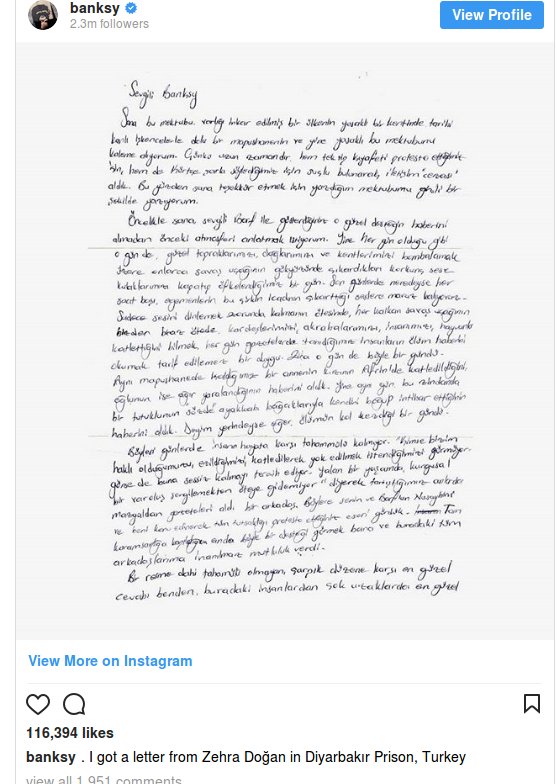 banksy
2.3m followers
View Profile
Sevgili Banksy
Sana bu mektubu, varlığı inkar edilmiş bir ülkenin yasaklı bir kentinde tarihi
kanlı işkencelerle dolu bir mapushanenin ve yine yasaklı bu mektubumu
kaleme alıyorum. Çünkü uzun zamandır, hem tek tip kıyafeti protesto ettiğimiz
için, hem de Kürtçe şarkı söylediğimiz için suçlu bulunarak, iletişim cezası
aldık. Bu yüzden sana teşekkür etmek için yazdığım mektubumu gizli bir
şekilde yazıyorum.
Öncelikle sana, sevgili Borf ile gösterdiğiniz o güzel desteğin haberini
almadan önceki atmosferi anlatmak istiyorum. Yine her gün olduğu gibi
o gün de, güzel topraklarımızı, dağlarımızı ve kentlerimizi bombalamak
üzere onlarca savaş uçağının gökyüzünde çıkardıkları korkunç sese
kulaklarımızı kapatıp öfkelendiğimiz bir gün. Son günlerde neredeyse her
saat başı, egemenlerin bu çıkardığı seslere maruz kalıyoruz.
Sadece sesini dinlemek zorunda kalmanın ötesinde, her kalkan savaş uçağının
biraz ötede kardeşlerimizi, akrabalarımızı, insanımızı, hayvanı
katlettiğini bilmek, her gün gazetelerde tanıdığımız insanların ölüm haberini
okumak tarif edilemez bir duygu. o gün de böyle bir gündü.
Aynı mapushanede kaldığımız bir annenin kızının Afrin'de katledildiğini,
oğlunun ise ağır yaralandığının haberini aldık. Yine aynı gün bu zindanda
bir tutuklunun sözde ayakkabı bağcıklarıyla kendini boğup intihar ettiğinin
haberini aldık. Deyim yerindeyse eğer, ölümün kol kezdiği bir gündü.
Böylesi günlerde insanın hayata karşı tahammülü kalmıyor. "Kimse bizim
haklı olduğumuzu, ezildiğimizi, katledilerek yok edilmek istendiğimizi görmüyor,
görse de buna sessiz kalmayı tercih ediyor. Yalan bir yaşamda, kurgusal
bir varoluş sergilemekten öteye gidemiyor" diyerek tartıştığımız anlarda
mazgaldan gazeteleri aldı bir arkadaş. Böylece senin ve Borf'un Nusaybin'i
ve beni konu edinerek tutsaklığı protesto ettiğiniz eseri gördük. Tam
karamsarlığa anda böyle bir desteği görmek bana ve buradaki tüm
arkadaşlarıma inanılmaz mutluluk verdi.
Bir resme dahi tahammülü olmayan, çarpık düzene karşı en güzel
cevabı benden, buradaki insanlardan çok uzaklarda en güzel
View More on Instagram
116,394 likes
banksy . I got a letter from Zehra Doğan in Diyarbakır Prison, Turkey
view all 1,951 comments